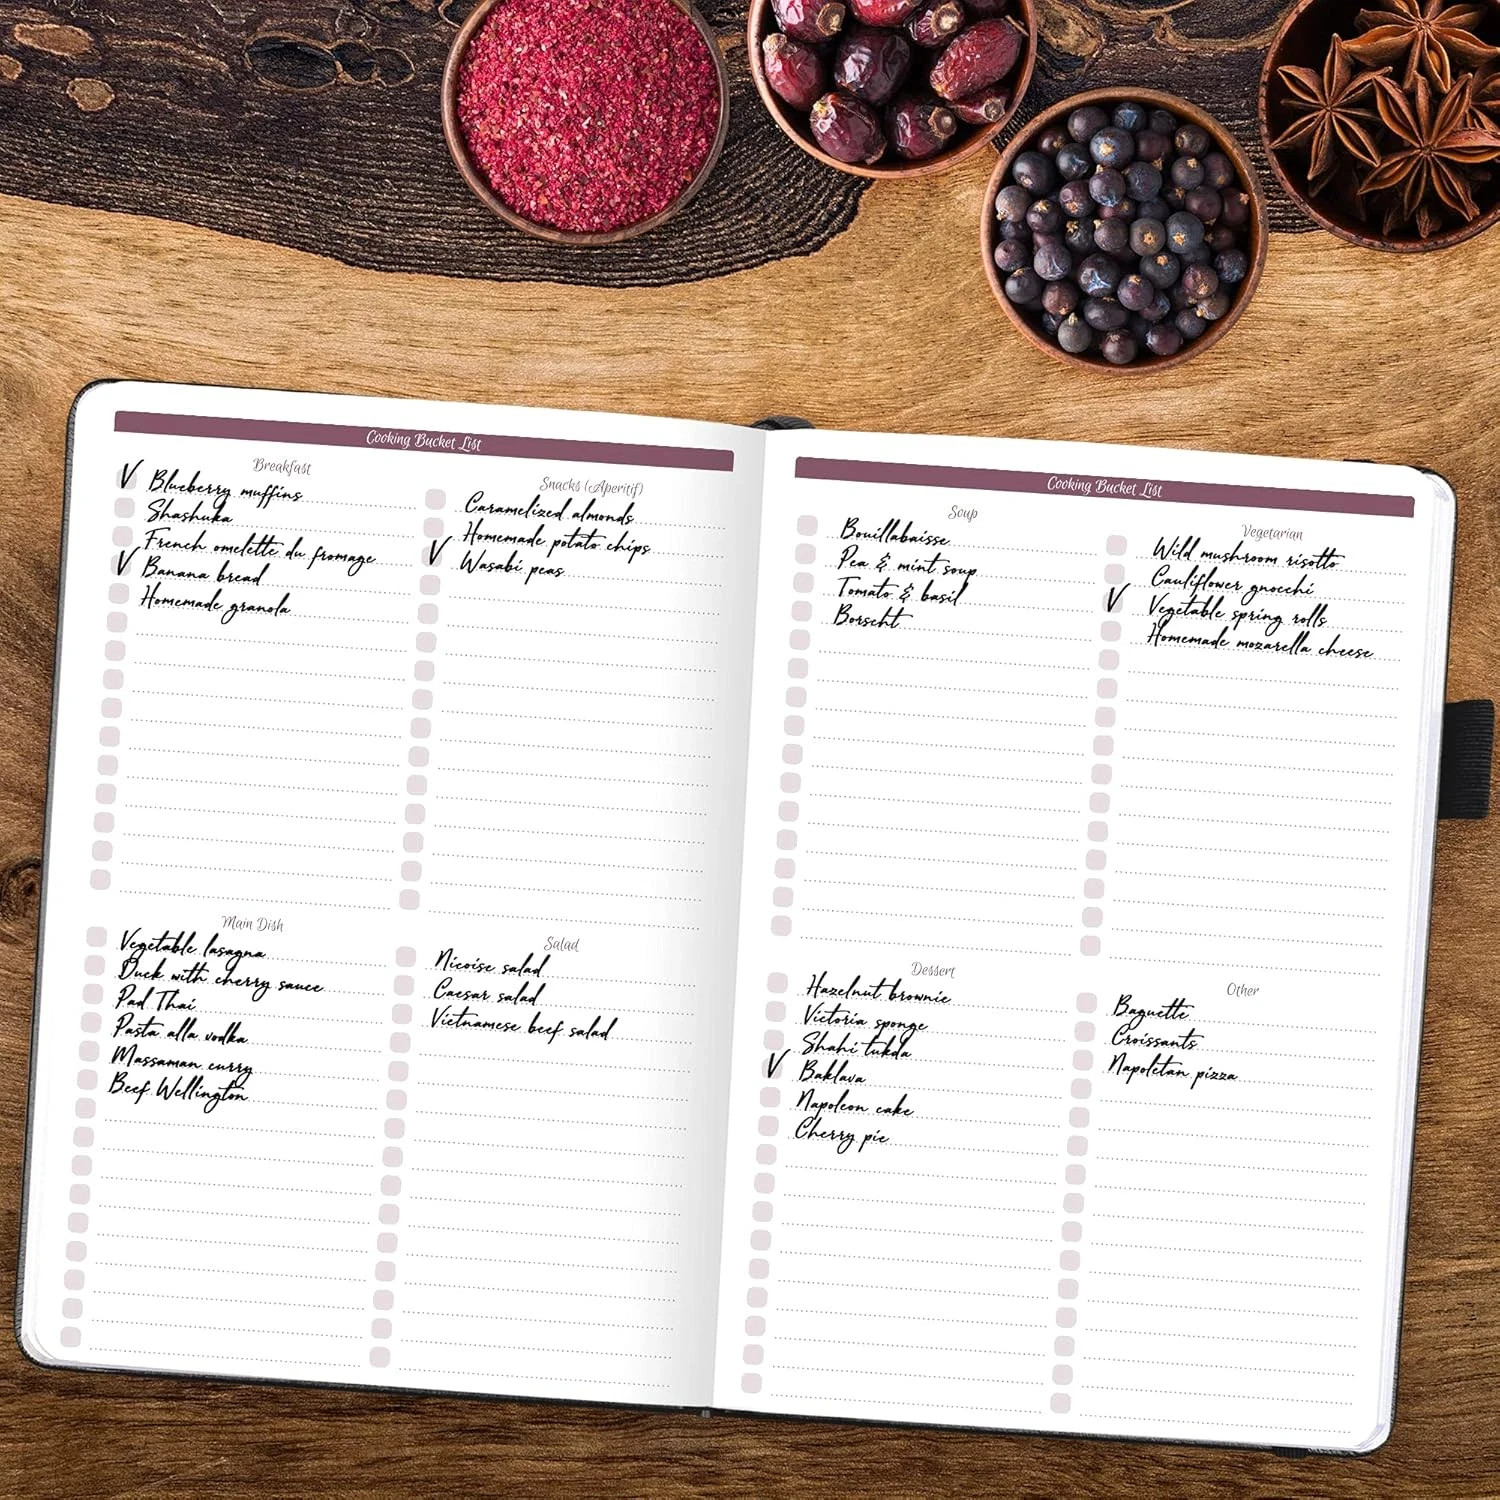 Cooking Bucket List
Breakfast
V Blueberry muffins
Shashuka
French omelette du fromage
V Banana bread
Homemade granola
Snacks (Aperitif)
Caramelized almonds
Homemade potato chips
V Wasabi peas
Main Dish
Vegetable lasagna
Duck with cherry sauce
Pad Thai
Pasta alla vodka
Massaman curry
Beef Wellington
Salad
Nicoise salad
Caesar salad
Vietnamese beef salad
Cooking Bucket List
Soup
Bouillabaisse
Pea & mint soup
Tomato & basil
Borscht
Vegetarian
Wild mushroom risotto
Cauliflower gnocchi
V Vegetable spring rolls
Homemade mozarella cheese
Dessert
Hazelnut brownie
Victoria sponge
Shahi tukda
V Baklava
Napoleon cake
Cherry pie
Other
Baguette
Croissants
Napoletan pizza